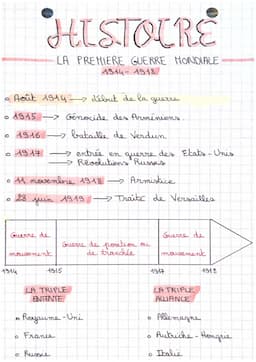 HISTOIRE
LA PREMIERE GUERRE MONDIALE
1914 - 1918
o Août 1914 → début de la guerre
o 1915 → Génocide des Arméniens.
o 1916 → bataille de Verdun
o 1917 → entrée en guerre des Etats-Unis
→ Révolutions Russes
o 11 novembre 1918 → Armistice
o 28 juin 1919 → Traité de Versailles
Guerre de mouvement
Guerre de position ou de tranchée
Guerre de mouvement
1914 1915 1917 1918
LA TRIPLE ENTENTE
o Royaume-Uni
o France
o Russie
LA TRIPLE ALLIANCE
o Allemagne
o Autriche-Hongrie
o Italie